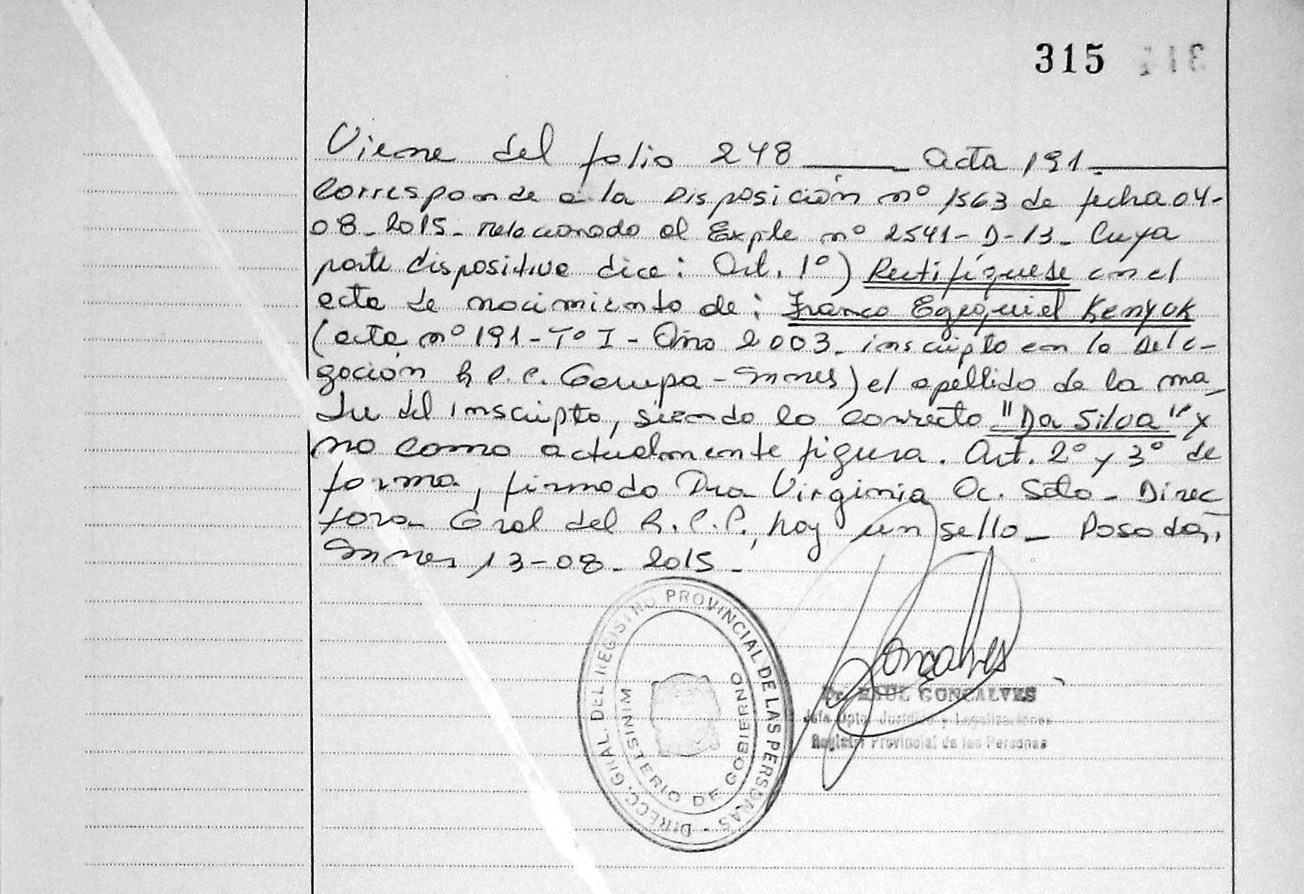 315
Viene del folio 248 ____ Acta 191.____
Corresponde a la Disposición nº 1563 de fecha 04-
08-2015- relacionado al Expte nº 2541-D-13- Cuya
parte dispositiva dice: Art. 1º) Rectifíquese en el
acta de nacimiento de: Franco Ezequiel Kenyuk
(acta nº 191-Tº I-Año 2003. inscripto en la Dele-
gación R.P.P. Garupa-Mnes) el apellido de la ma-
dre del inscripto, siendo lo correcto "Da Silva" y
no como actualmente figura. Art. 2º y 3º de
forma, firmado Dra Virginia Soto- Direc
tora Gral del R.P.P., hay un sello_ Posadas,
Mnes 13-08-2015-
DIRECC. GRAL. DEL REGISTRO PROVINCIAL DE LAS PERSONAS -
MINISTERIO DE GOBIERNO
Gonçalves
Dr. RAUL GONÇALVES
Jefe Dpto. Jurídico y Legalizaciones
Registro Provincial de las Personas